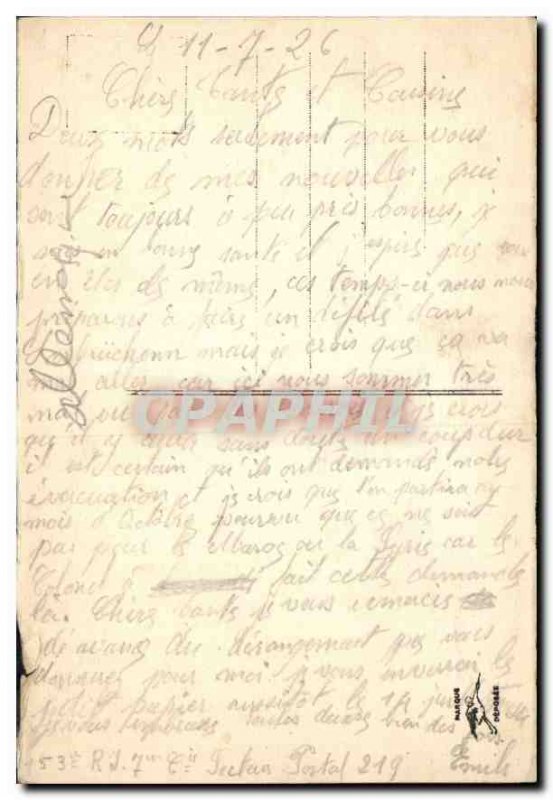 Le 11-7-26
Chers Tante et Cousins
Deux mots seulement pour vous
donner de mes nouvelles qui
sont toujours à peu près bonnes, je
suis en bonne santé et j'espère que vous
en êtes de même, ces temps-ci nous nous
préparons à faire un défilé dans
brücken mais je crois que ça va
mal aller car ici nous sommes très
mal vu
qu'il y aura sans doute un coup dur
il est certain qu'ils ont demandé notre
évacuation et je crois que l'on partira au
mois d'Octobre pourvu que ce ne soit
pas pour le Maroc ou la Syrie car le
Colonel à fait cette demande
là. Chère Tante je vous remercie
d'avance du dérangement que vous
donner pour moi je vous enverrai le
petit papier aussitôt le 14 juillet
Je vous embrasse toutes deux bien des
Emile
153e R.I. 7me Cie Secteur Postal 219
CPAPHIL
MARQUE
DÉPOSÉE